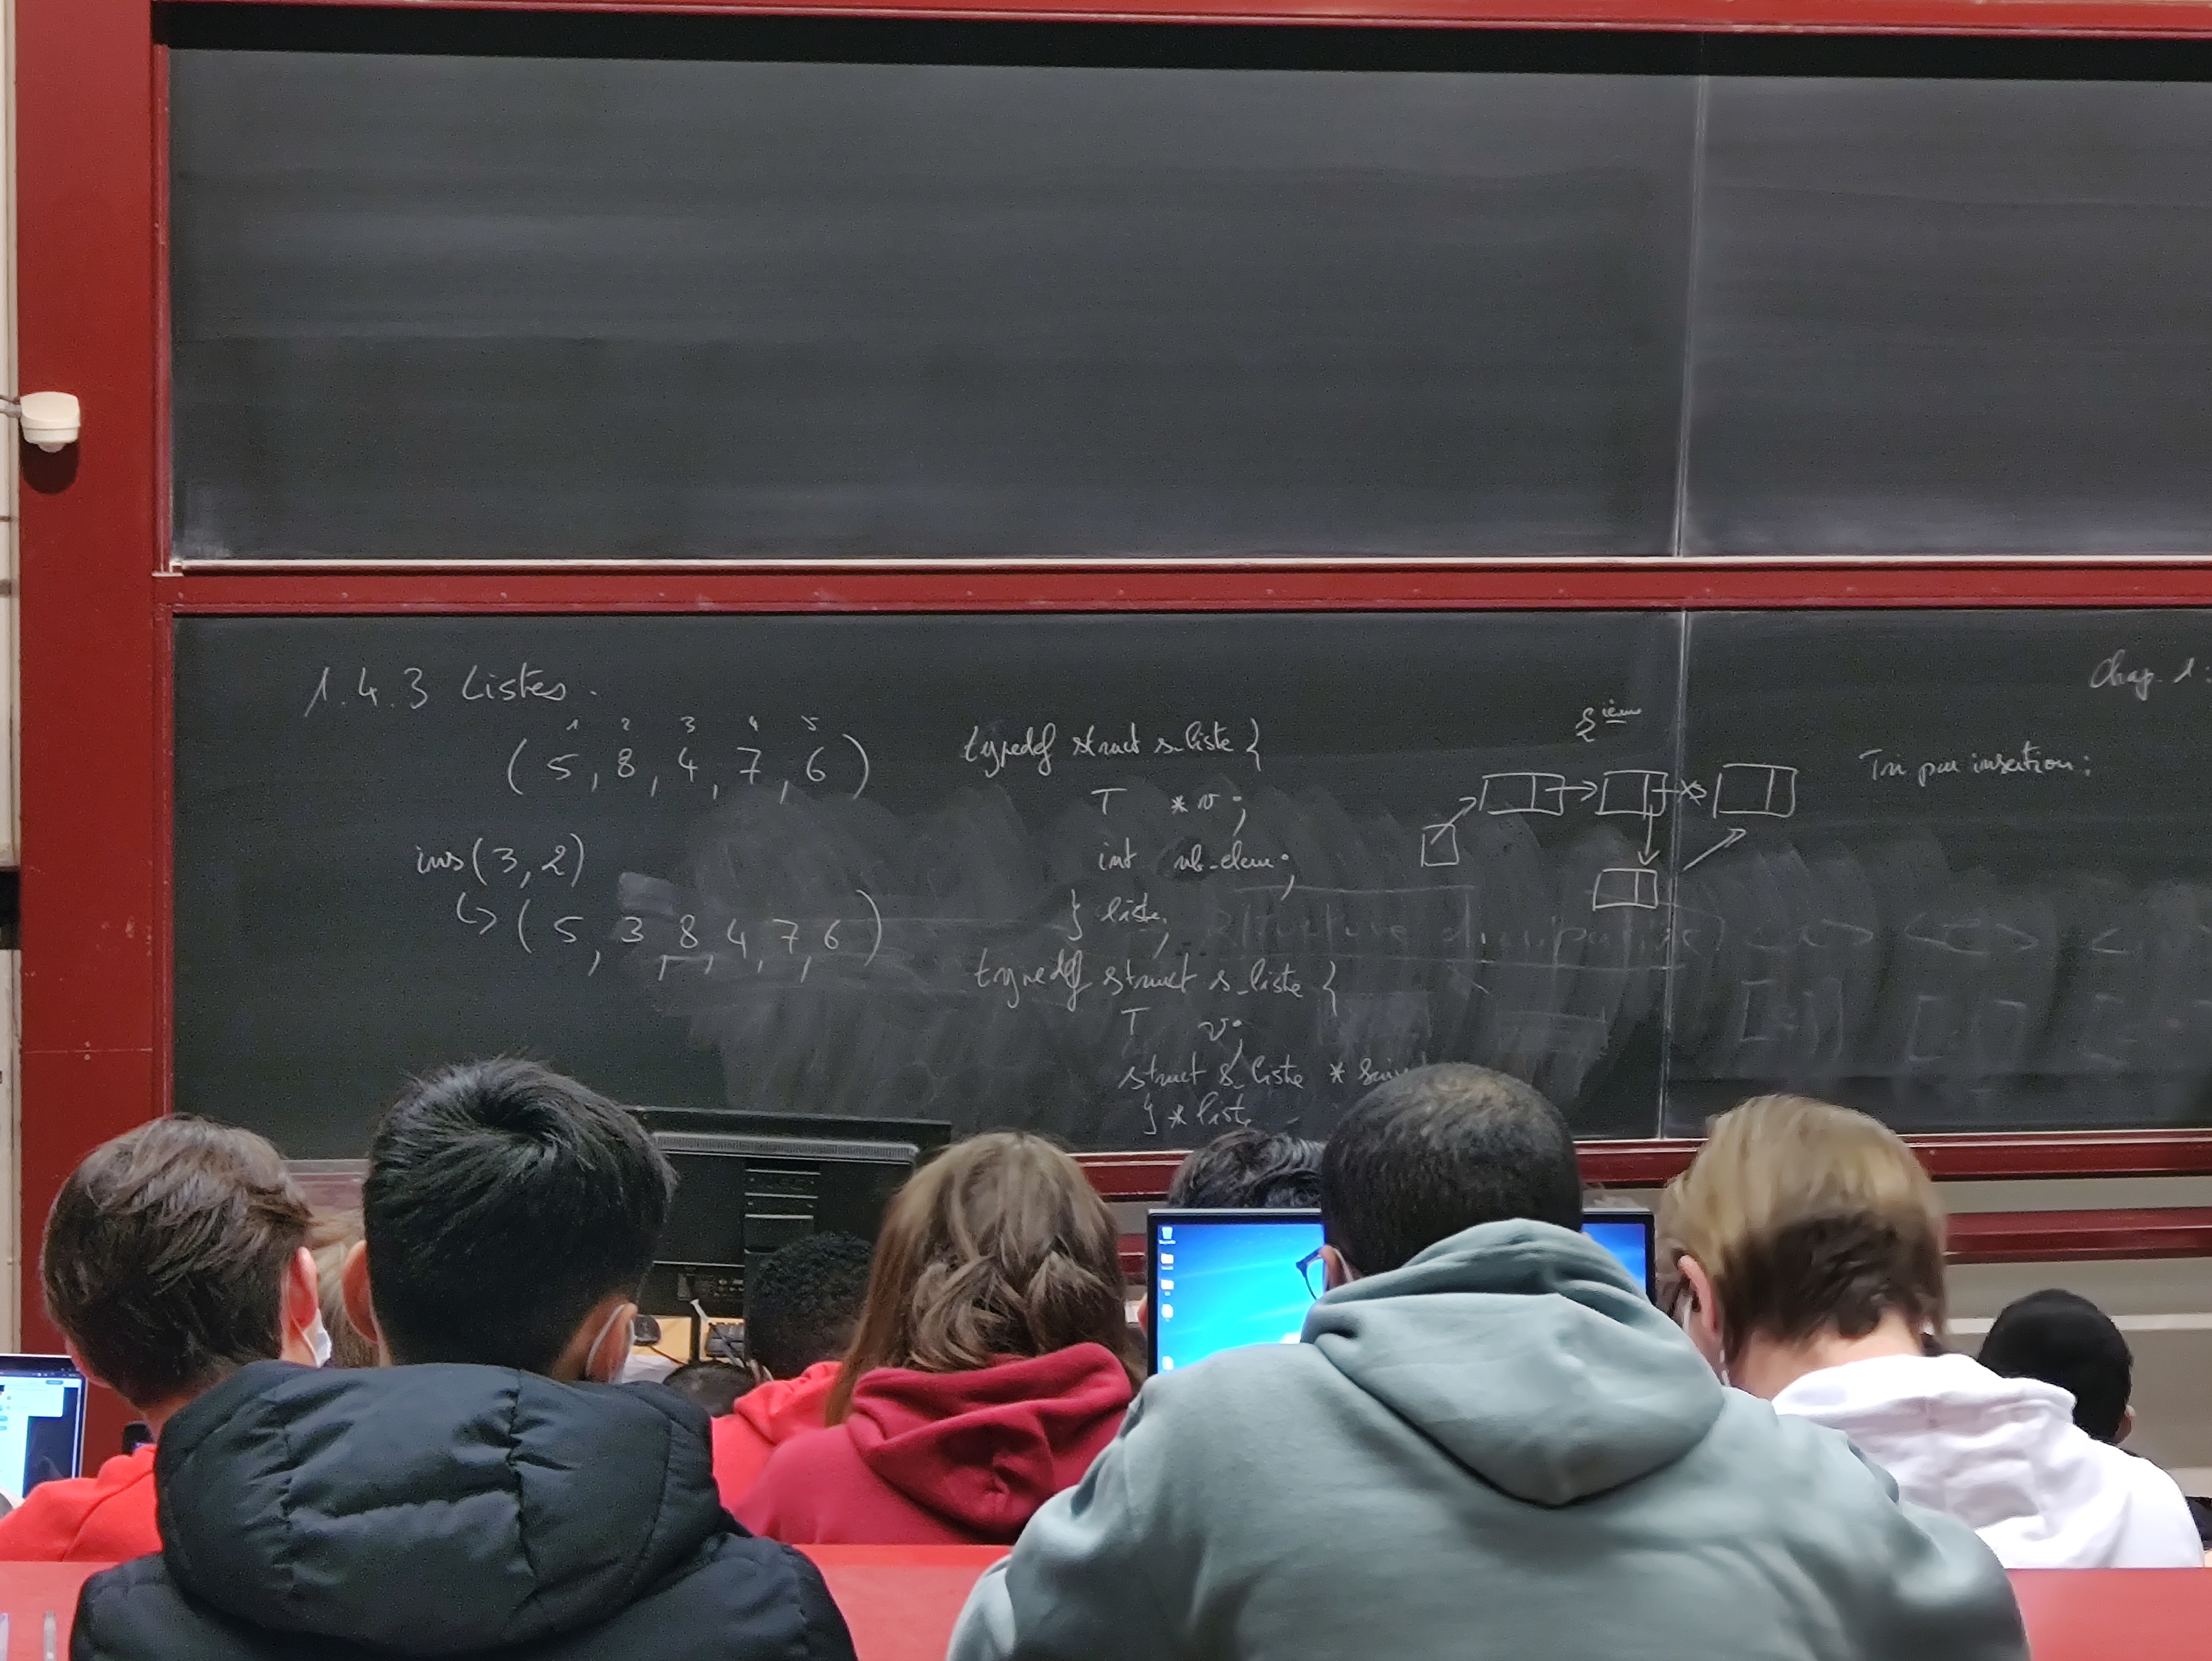 1.4.3 Listes.
1 2 3 4 5
(5, 8, 4, 7, 6)
ins(3,2)
↳ (5, 3, 8, 4, 7, 6)
typedef struct s_liste {
T *v;
int nb_elem;
} liste;
typedef struct s_liste {
T v;
struct s_liste *
} *liste
ième
Tri par insertion:
Chap. 1: